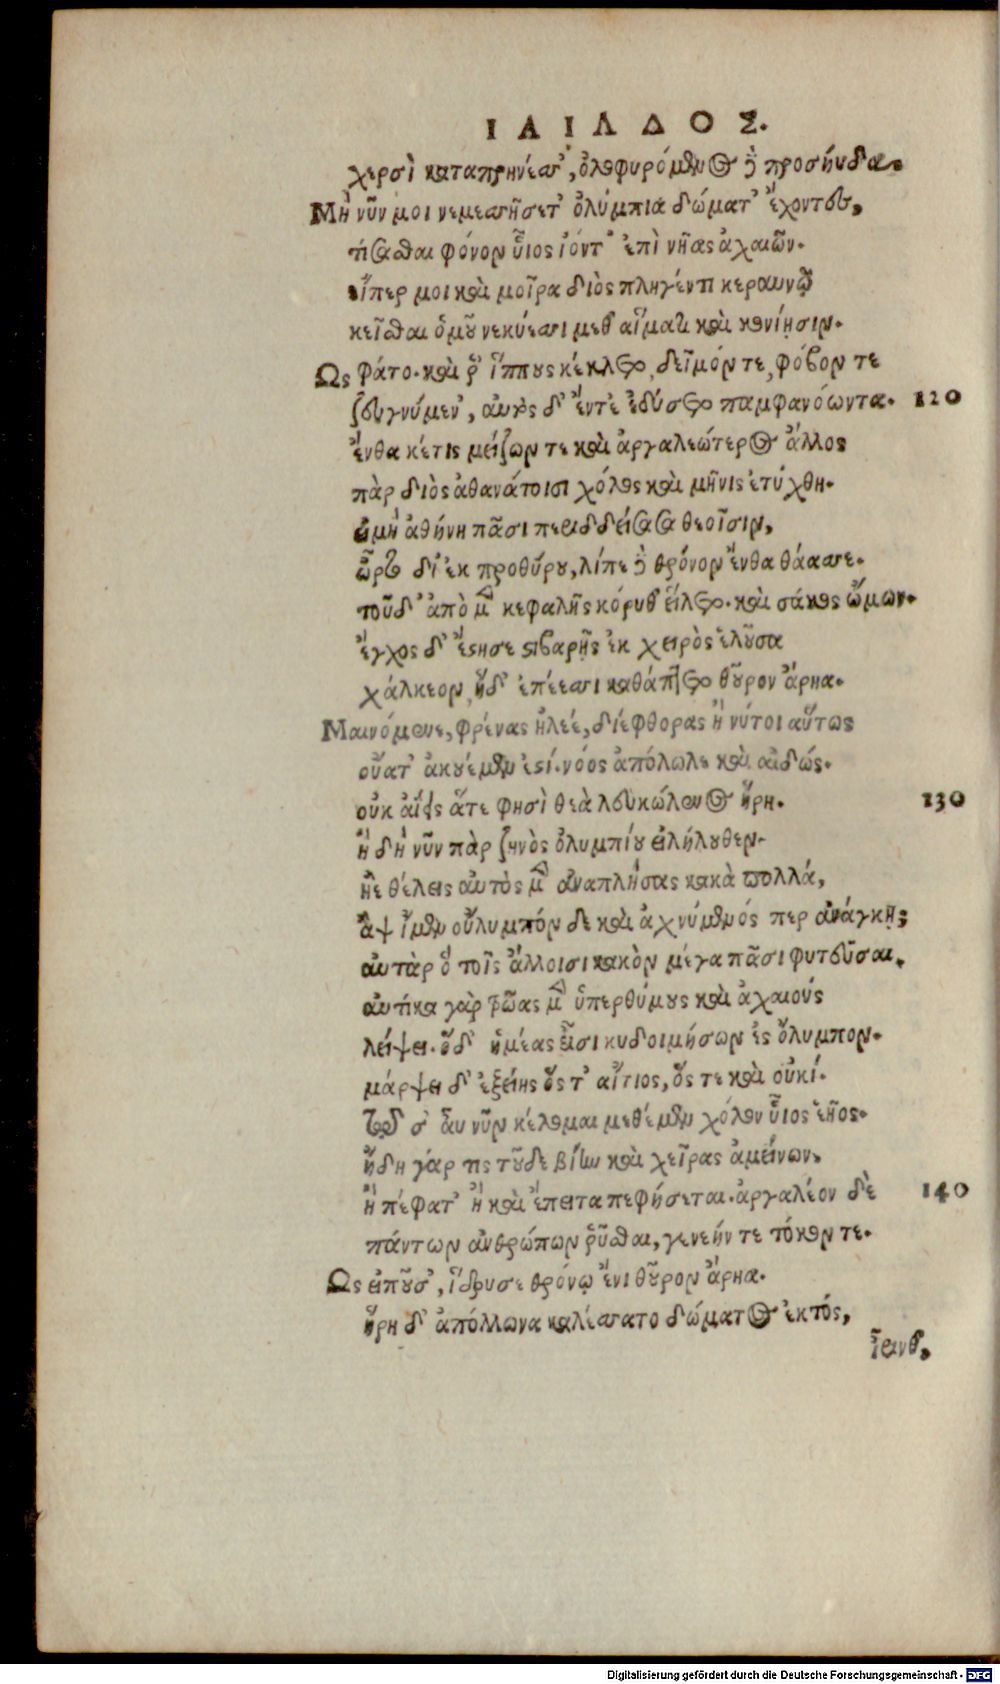 ΙΛΙΑΔΟΣ.
χερσὶ καταπρηνέσσ', ὀλοφυρόμενος δὲ προσηύδα.
Μὴ νῦν μοι νεμεσσήσετ' ὀλύμπια δώματ' ἔχοντες,
τίσασθαι φόνον υἷος ἰόντ' ἐπὶ νῆας ἀχαιῶν.
εἴπερ μοι καὶ μοῖρα διὸς πληγέντι κεραυνῷ
κεῖσθαι ὁμοῦ νεκύεσσι μεθ' αἵματι καὶ κονίῃσιν.
Ως φάτο. καὶ ῥ' ἵππους κέκλετο, δεῖμόν τε, φόβον τε
ζευγνύμεν', αὐτὸς δ' ἔντε' ἐδύσετο παμφανόωντα. 120
ἔνθα κέτις μείζων τε καὶ ἀργαλεώτερος ἄλλος
πὰρ διὸς ἀθανάτοισι χόλος καὶ μῆνις ἐτύχθη.
εἰμὴ ἀθήνη πᾶσι περιδδείσασα θεοῖσιν,
ὦρτο δι' ἐκ προθύρου, λίπε δὲ θρόνον ἔνθα θάασσε.
τοῦ δ' ἀπὸ μὲν κεφαλῆς κόρυθ' εἵλετο. καὶ σάκος ὤμων.
ἔγχος δ' ἔστησε στιβαρῆς ἐκ χειρὸς ἑλοῦσα
χάλκεον, ἥδ' ἐπέεσσι καθάπτετο θοῦρον ἄρηα.
Μαινόμενε, φρένας ἠλεέ, διέφθορας ἢ νύτοι αὔτως
οὔατ' ἀκουέμεν ἐστί. νόος ἀπόλωλε καὶ αἰδώς.
οὐκ ἀΐεις ἅτε φησὶ θεὰ λευκώλενος ἥρη. 130
ἣ δὴ νῦν πὰρ ζηνὸς ὀλυμπίου εἰλήλουθεν.
ἢε θέλεις αὐτὸς μὲν ἀναπλήσας κακὰ πολλά,
ἂψ ἴμεν οὔλυμπόν δε καὶ ἀχνύμενός περ ἀνάγκῃ;
αὐτὰρ ὃ τοῖς ἄλλοισι κακὸν μέγα πᾶσι φυτεῦσαι.
αὐτίκα γὰρ τρῶας μὲν ὑπερθύμους καὶ ἀχαιούς
λείψει. ὅδ' ἡμέας εἶσι κυδοιμήσων ἐς ὄλυμπον.
μάρψει δ' ἑξείης ὅς τ' αἴτιος, ὅς τε καὶ οὐκί.
τῷ δ σ' ἂυ νῦν κέλομαι μεθέμεν χόλον υἷος ἑῆος.
ἤδη γάρ τις τοῦδε βίην καὶ χεῖρας ἀμείνων,
ἢ πέφατ' ἢ καὶ ἔπειτα πεφήσεται. ἀργαλέον δὲ 140
πάντων ἀνθρώπων ῥῦσθαι, γενεήν τε τόκον τε.
Ως εἰποῦσ', ἵδρυσε θρόνῳ ἔνι θοῦρον ἄρηα.
ἥρη δ' ἀπόλλωνα καλέσσατο δώματος ἐκτός,
ἶρινθ',
Digitalisierung gefördert durch die Deutsche Forschungsgemeinschaft - DFG